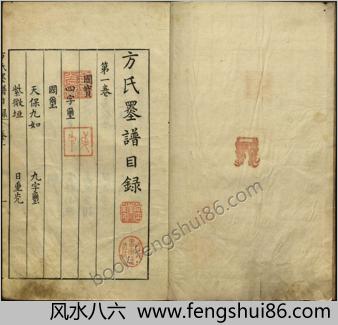 方氏墨譜目錄
第一卷
國寶
四字璽
國璽
天保九如 九字璽
紫微垣 日重光
book.fengshui86.com
风水八六 www.fengshui86.com